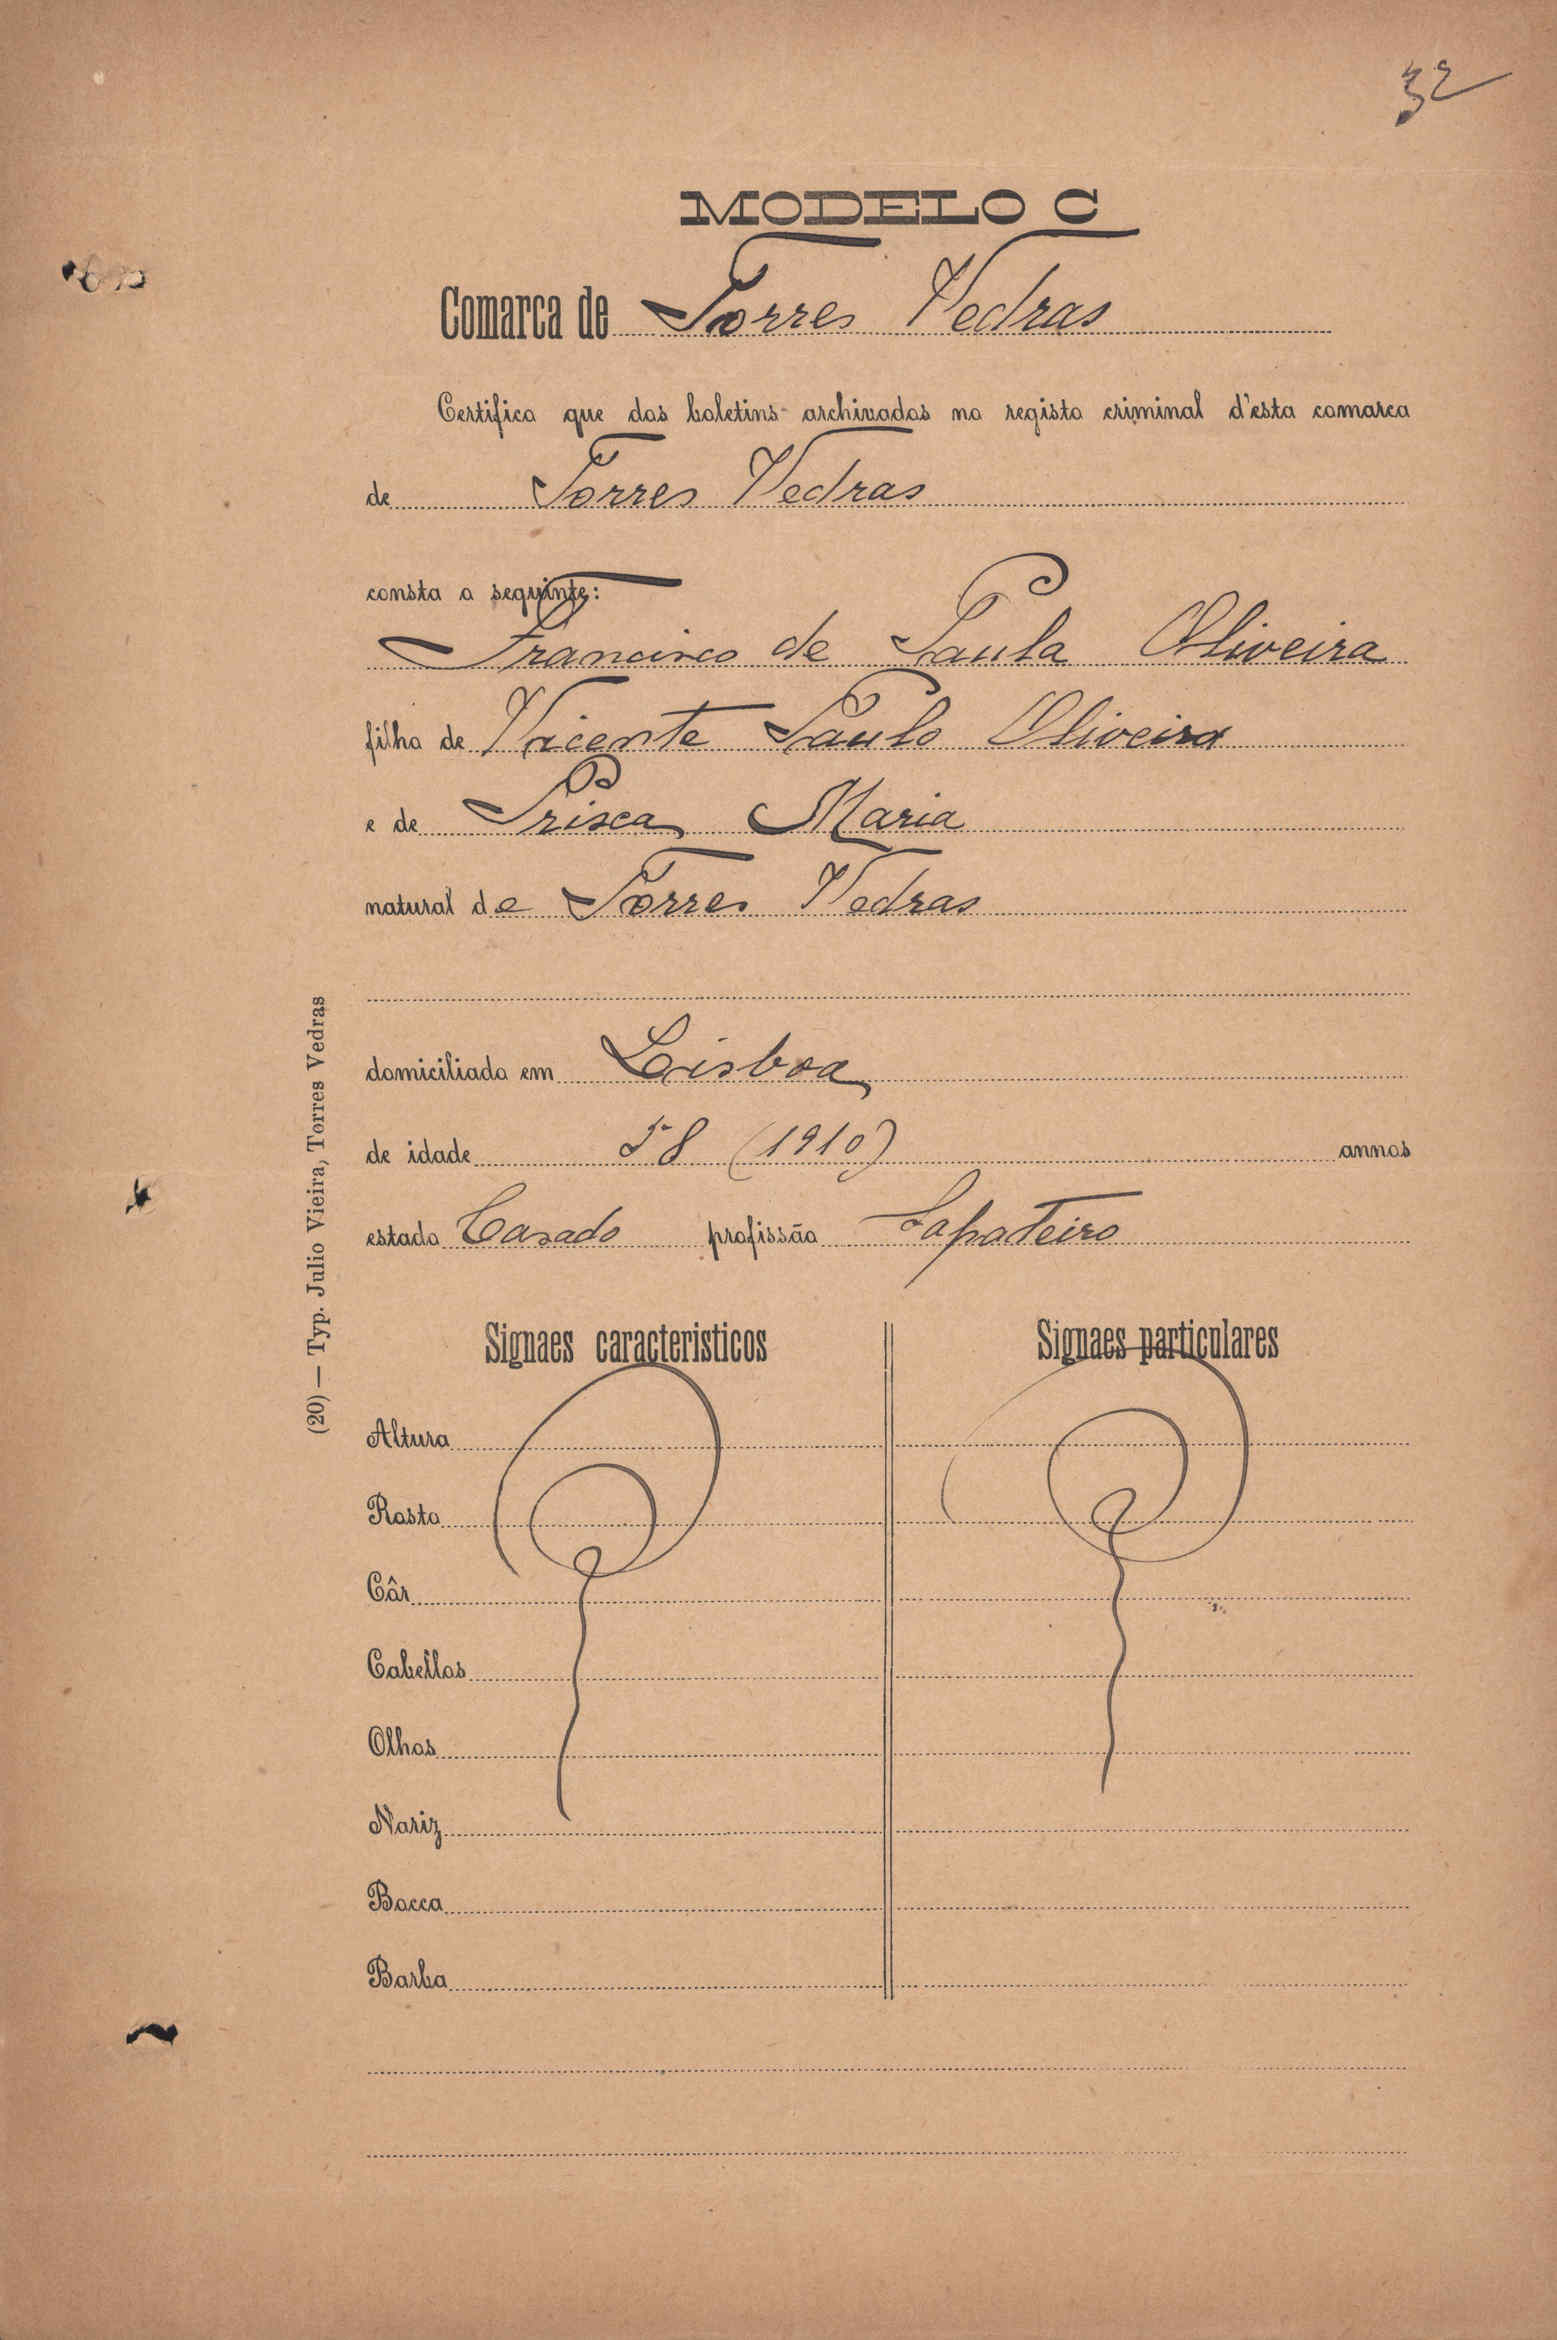 32
MODELO C
Comarca de Torres Vedras
Certifico que dos boletins archivados no registo criminal d'esta comarca
de Torres Vedras
consta o seguinte:
Francisco de Paula Oliveira
filho de Vicente Paulo Oliveira
e de Prisca Maria
natural de Torres Vedras
domiciliado em Lisboa
de idade 58 (1910) annos
estado Casado profissão Sapateiro
Signaes caracteristicos Signaes particulares
Altura
Rosto
Côr
Cabellos
Olhos
Nariz
Bocca
Barba
(20) — Typ. Julio Vieira, Torres Vedras